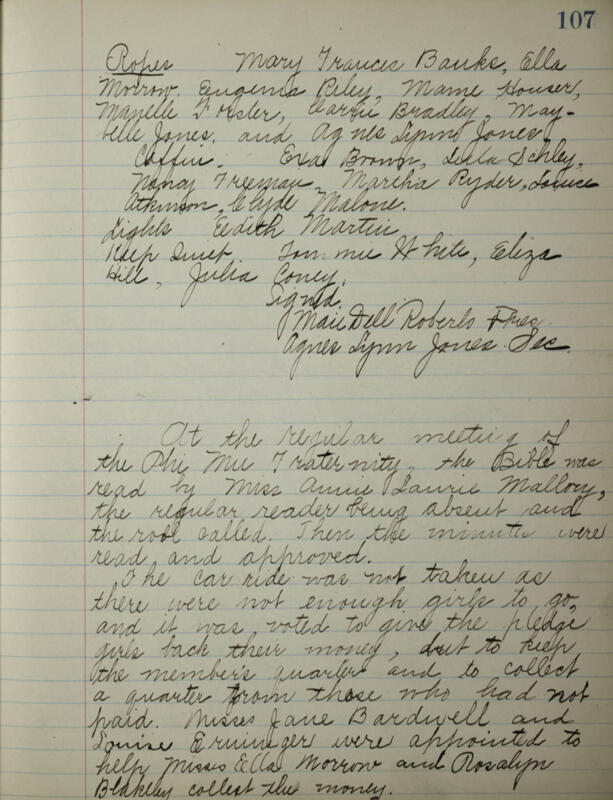 107
Ropes Mary Frances Banks, Ella
Morrow, Eugenia Riley, Mame Houser,
Manelle Forster, Carrie Bradley, May-
belle Jones, and Agnes Lynn Jones
Coffin. Exa Brown, Leila Schley,
Nancy Freeman, Martha Ryder, Louice
Atkinson, Clyde Malone.
Lights Edith Martin
Keep Quiet. Tommie White, Eliza
Hill, Julia Coney.
Signed.
Mai Dell Roberts Pres.
Agnes Lynn Jones. Sec.
At the regular meeting of
the Phi Mu Fraternity, the Bible was
read by Miss Annie Laurie Mallory,
the regular reader being absent and
the roll called. Then the minutes were
read and approved.
The car ride was not taken as
there were not enough girls to go,
and it was voted to give the pledge
girls back their money, but to keep
the member's quarter and to collect
a quarter from those who had not
paid. Misses Jane Bardwell and
Louise Erminger were appointed to
help Misses Ella Morrow and Rosalyn
Blakeley collect the money.